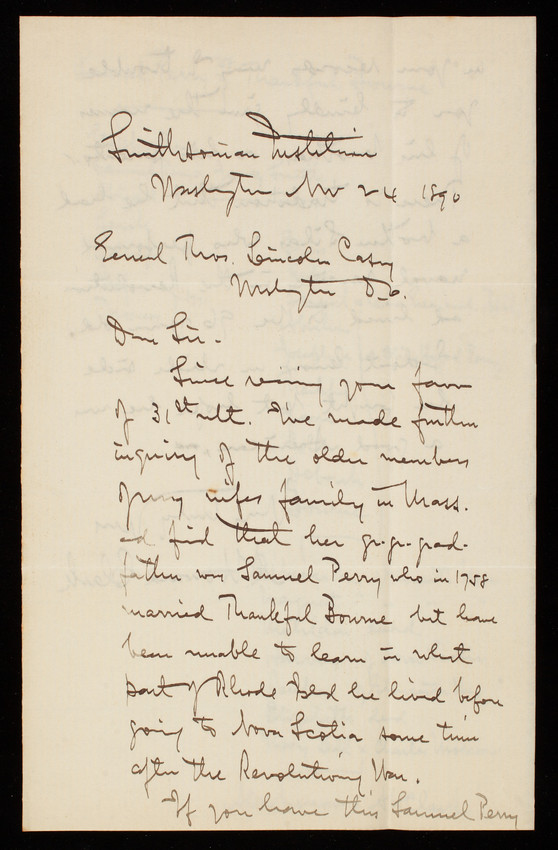 Smithsonian Institution
Washington Nov 24 1890
General Thos. Lincoln Casey
Washington D.C.
Dear Sir.
Since receiving your favor
of 31st ult. I've made further
inquiry of the older members
of my wifes family in Mass.
and find that her gr.gr.grand-
father was Samuel Perry who in 1758
married Thankful Bourne but have
been unable to learn in what
part of Rhode Isld he lived before
going to Nova Scotia some time
after the Revolutionary War.
If you have this Samuel Perry